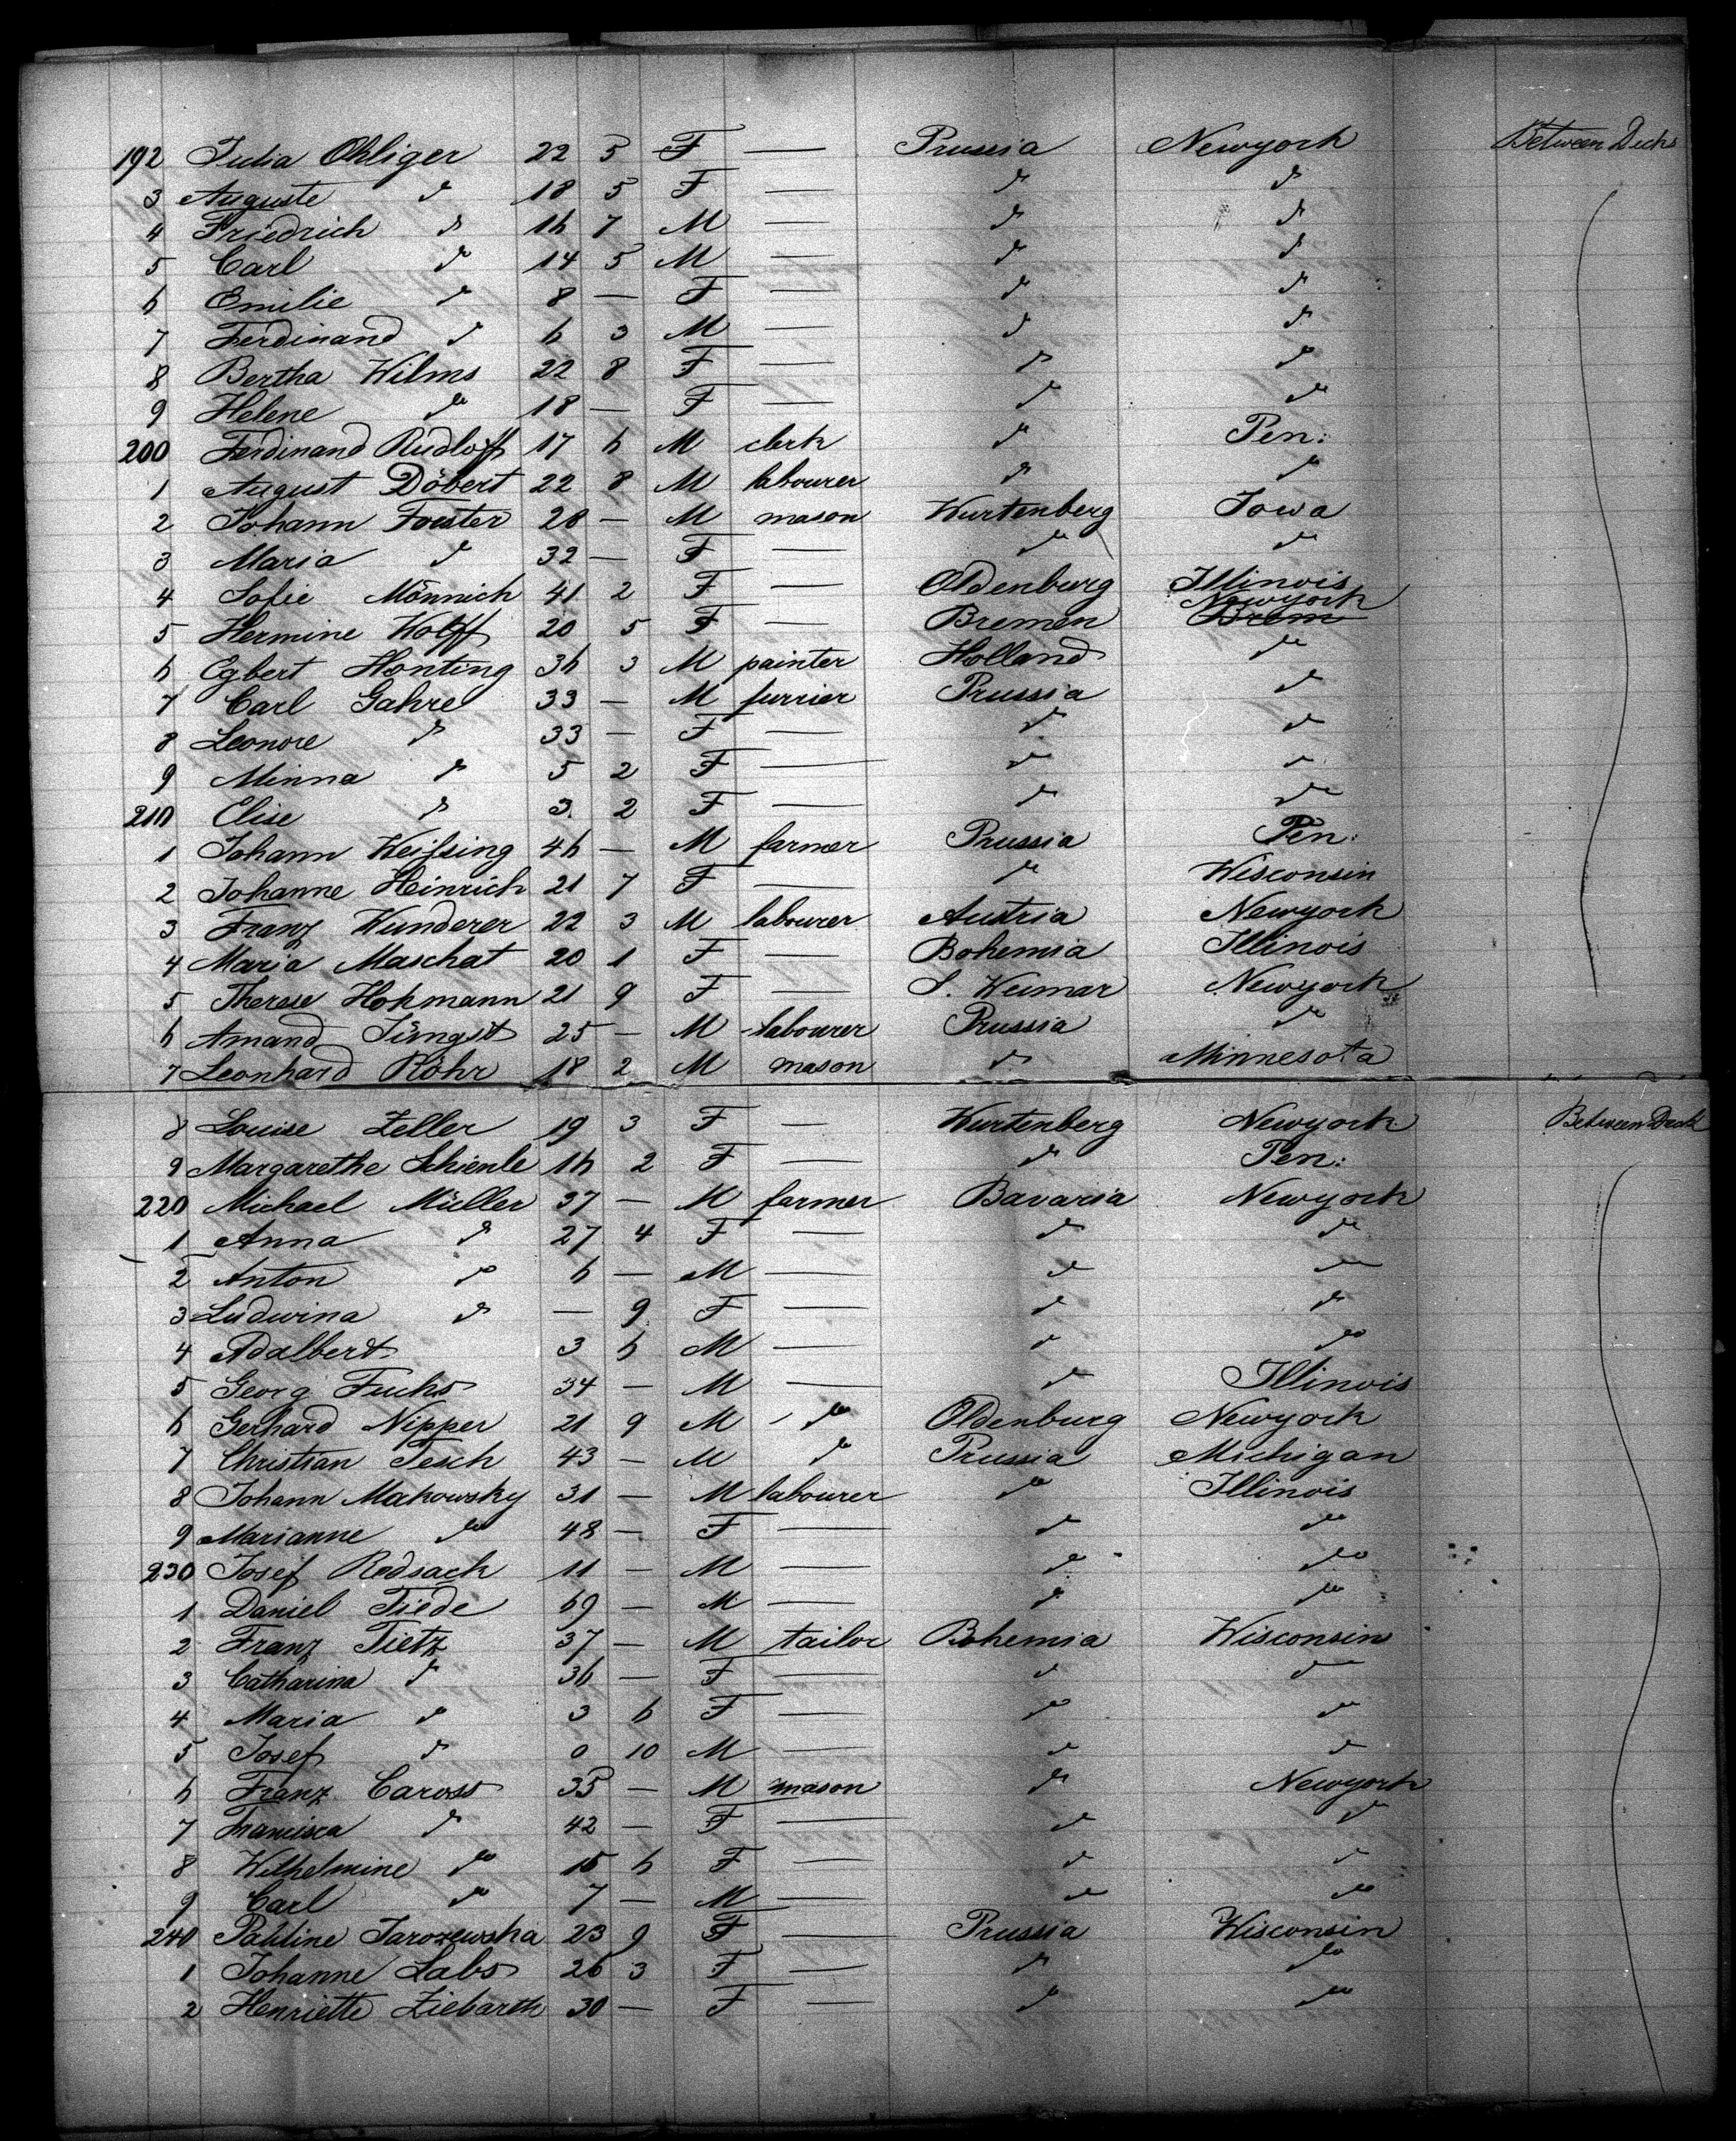 192 Julia Ohliger 22 5 F — Prussia Newyork Between Decks
3 Auguste do 18 5 F — do do
4 Friedrich do 16 7 M — do do
5 Carl do 14 5 M — do do
6 Emilie do 8 — F — do do
7 Ferdinand do 6 3 M — do do
8 Bertha Wilms 22 8 F — do do
9 Helene do 18 — F — do do
200 Ferdinand Rudloff 17 6 M clerk do Pen:
1 August Döbert 22 8 M labourer do do
2 Johann Foester 28 — M mason Wurtenberg Iowa
3 Maria do 32 — F — do do
4 Sofie Mönnich 41 2 F — Oldenburg Illinois
5 Hermine Wolff 20 5 F — Bremen Newyork Brem
6 Egbert Honting 36 3 M painter Holland do
7 Carl Gahre 33 — M furrier Prussia do
8 Leonore do 33 — F — do do
9 Minna do 5 2 F — do do
210 Elise do 3 2 F — do do
1 Johann Weissing 46 — M farmer Prussia Pen:
2 Johanne Heinrich 21 7 F — do Wisconsin
3 Franz Wunderer 22 3 M labourer Austria Newyork
4 Maria Maschat 20 1 F — Bohemia Illinois
5 Therese Hohmann 21 9 F — S. Weimar Newyork
6 Amand Jüngst 25 — M labourer Prussia do
7 Leonhard Röhr 18 2 M mason do Minnesota
8 Louise Zeller 19 3 F — Wurtenberg Newyork Between Deck
9 Margarethe Schienle 16 2 F — do Pen:
220 Michael Müller 37 — M farmer Bavaria Newyork
1 Anna do 27 4 F — do do
2 Anton do 6 — M — do do
3 Ludwina do — 9 F — do do
4 Adalbert 3 6 M — do do
5 Georg Fuchs 34 — M — do Illinois
6 Gerhard Nipper 21 9 M do Oldenburg Newyork
7 Christian Tesch 43 — M do Prussia Michigan
8 Johann Makowsky 31 — M labourer do Illinois
9 Marianne do 48 — F — do do
230 Josef Redsack 11 — M — do do
1 Daniel Tiede 69 — M — do do
2 Franz Tietz 37 — M tailor Bohemia Wisconsin
3 Catharina do 36 — F — do do
4 Maria do 3 6 F — do do
5 Josef do 0 10 M — do do
6 Franz Caross 35 — M mason do Newyork
7 Francisca do 42 — F — do do
8 Wilhelmine do 15 6 F — do do
9 Carl do 7 — M — do do
240 Pauline Jarozewska 23 9 F — Prussia Wisconsin
1 Johanne Labs 26 3 F — do do
2 Henriette Ziebarth 30 — F — do do